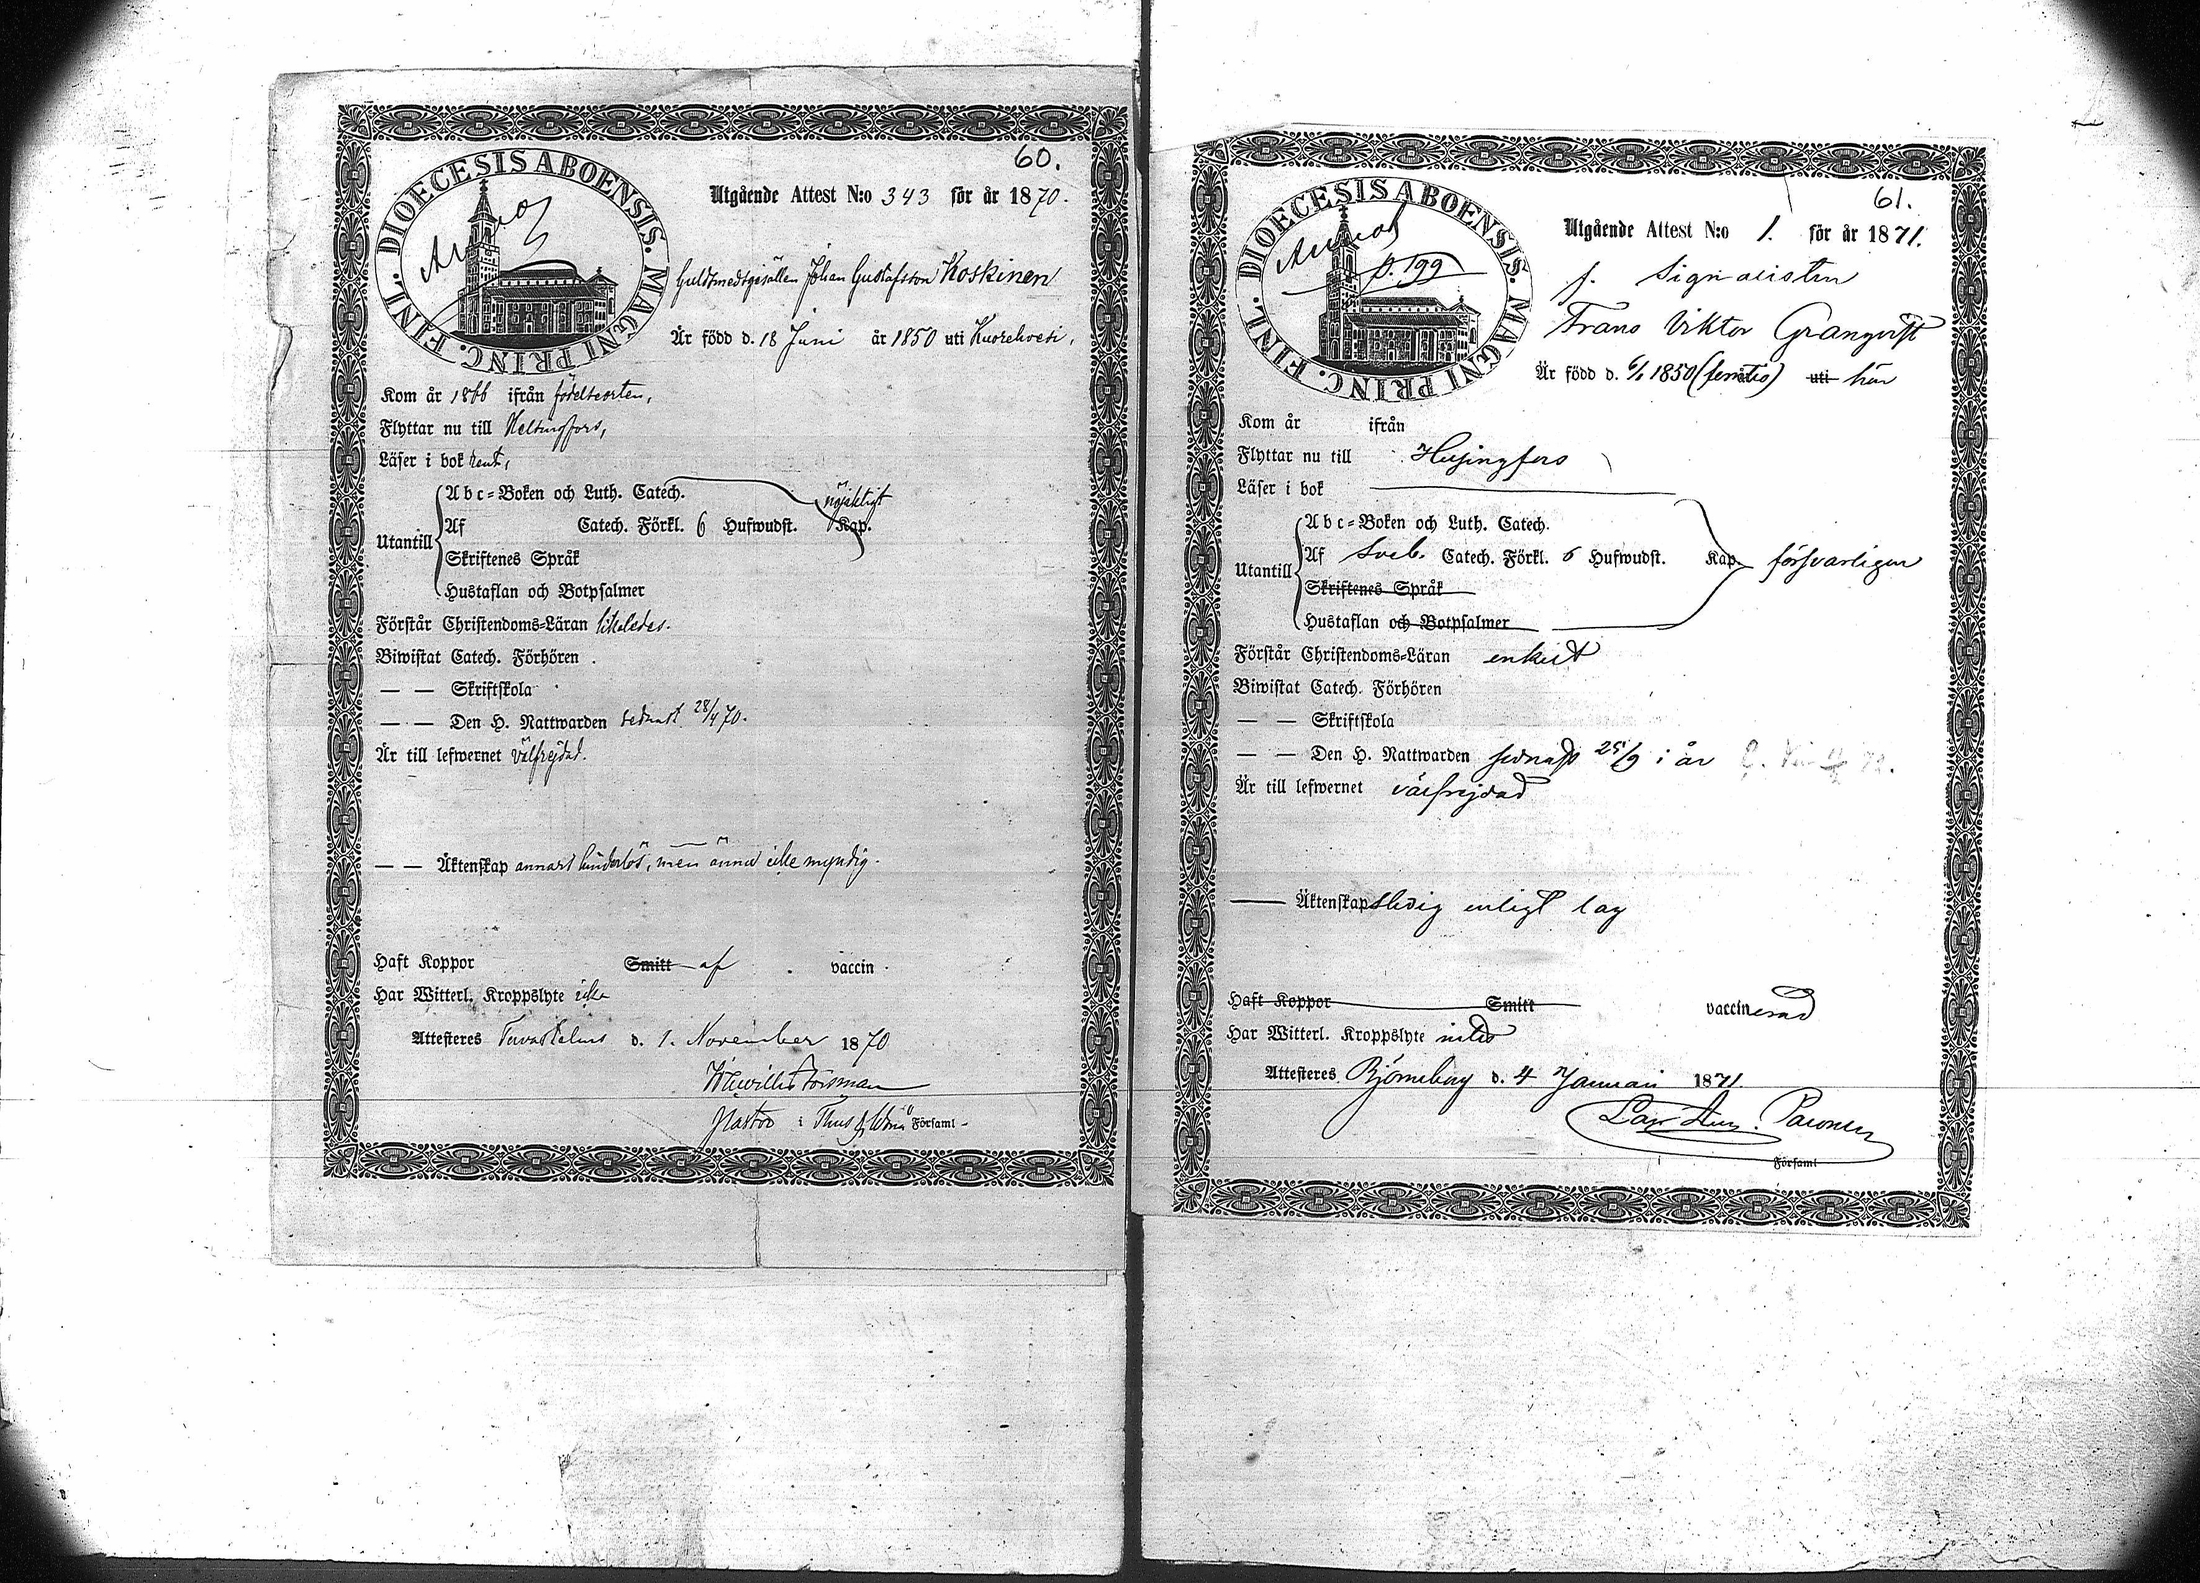 60.
DIOECESIS ABOENSIS. MAGNI PRINC. FINL.
Utgående Attest N:o 343 för år 1870.
Guldsmedsgesällen Johan Gustafsson Koskinen
Är född d. 18 Juni år 1850 uti Kuorehvesi,
Kom år 1866 ifrån födelseorten,
Flyttar nu till Helsingfors,
Läser i bok rent,
Utantill
Abc-Boken och Luth. Catech.
Af Catech. Förkl. 6 Hufwudst. Kap. nöjaktigt
Skriftenes Språk
Hustaflan och Botpsalmer
Förstår Christendoms-Läran likaledes.
Biwistat Catech. Förhören
— — Skriftskola
— — Den H. Nattwarden sednast 28/4 70.
Är till lefwernet välfrejdad.
— — Äktenskap annars hinderlös, men ännu icke myndig.
Haft Koppor Smitt af vaccin.
Har Witterl. Kroppslyte icke
Attesteres Tavastehus d. 1. November 1870
Forsman
Pastor i Församl.
61.
DIOECESIS ABOENSIS. MAGNI PRINC. FINL.
p. 199
Utgående Attest N:o 1. för år 1871.
f. Signalisten
Frans Viktor Granqvist
Är född d. 6/1 1850 (femtio) uti här
Kom år ifrån
Flyttar nu till Helsingfors
Läser i bok
Utantill
Abc-Boken och Luth. Catech.
Af Sveb. Catech. Förkl. 6 Hufwudst. Kap. försvarligen
Skriftenes Språk
Hustaflan och Botpsalmer
Förstår Christendoms-Läran enkelt
Biwistat Catech. Förhören
— — Skriftskola
— — Den H. Nattwarden sednast 25/9 i år
Är till lefwernet välfrejdad
— Äktenskap ledig enligt lag
Haft Koppor Smitt vaccinerad
Har Witterl. Kroppslyte intet
Attesteres Björneborg d. 4 Januari 1871.
Församl